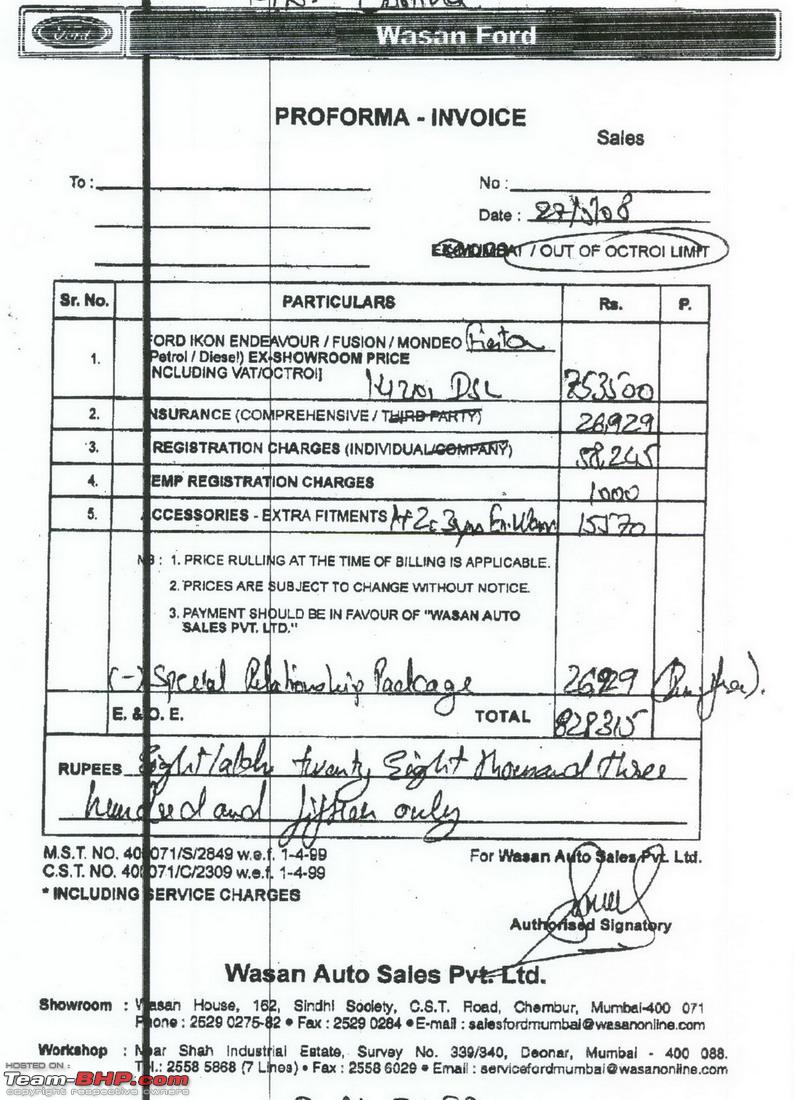 Ford
Wasan Ford
PROFORMA - INVOICE
Sales
To :
No :
Date : 27/5/08
EX-MUMBAI / OUT OF OCTROI LIMIT
Sr. No. PARTICULARS Rs. P.
1. FORD IKON ENDEAVOUR / FUSION / MONDEO Fiesta
Petrol / Diesel) EX-SHOWROOM PRICE
NCLUDING VAT/OCTROI]
DSL 753500
2. NSURANCE (COMPREHENSIVE / THIRD PARTY) 26,929
3. REGISTRATION CHARGES (INDIVIDUAL/COMPANY) 58,245
4. EMP REGISTRATION CHARGES 1000
5. CCESSORIES - EXTRA FITMENTS 15570
NB : 1. PRICE RULLING AT THE TIME OF BILLING IS APPLICABLE.
2. PRICES ARE SUBJECT TO CHANGE WITHOUT NOTICE.
3. PAYMENT SHOULD BE IN FAVOUR OF "WASAN AUTO
SALES PVT. LTD."
(-) Special Relationship Package 26929
E. & O. E. TOTAL 828315
RUPEES Eight lakhs twenty Eight thousand three
hundred and fifteen only
M.S.T. NO. 400071/S/2849 w.e.f. 1-4-99
C.S.T. NO. 400071/C/2309 w.e.f. 1-4-99
* INCLUDING SERVICE CHARGES
For Wasan Auto Sales Pvt. Ltd.
Authorised Signatory
Wasan Auto Sales Pvt. Ltd.
Showroom : Wasan House, 162, Sindhi Society, C.S.T. Road, Chembur, Mumbai-400 071
Phone : 2529 0275-82 • Fax : 2529 0284 • E-mail : salesfordmumbai@wasanonline.com
Workshop : Near Shah Industrial Estate, Survey No. 339/340, Deonar, Mumbai - 400 088.
Tel.: 2558 5868 (7 Lines) • Fax : 2558 6029 • Email : servicefordmumbai@wasanonline.com
HOSTED ON :
Team-BHP.com
copyright respective owners